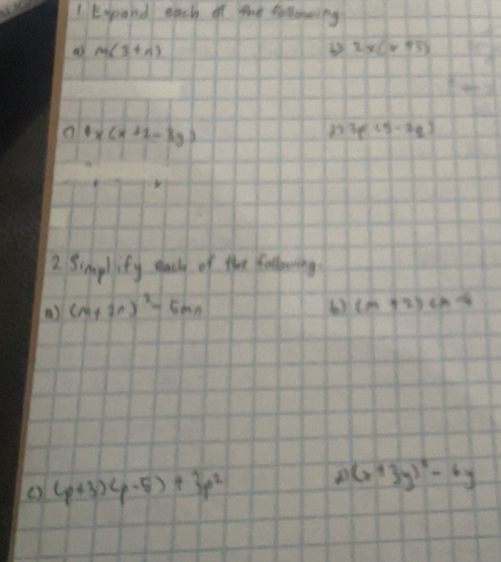 1 Expand each of the following
a) m(3+n)
b) 2x(x+5)
c) 4x(x+2-3y)
2 Simplify each of the following
a) (m+2n)² - 5mn
b) (m+2)(m
c) (p+3)(p-5) + 3p²
d) (x+3y)² - 6y